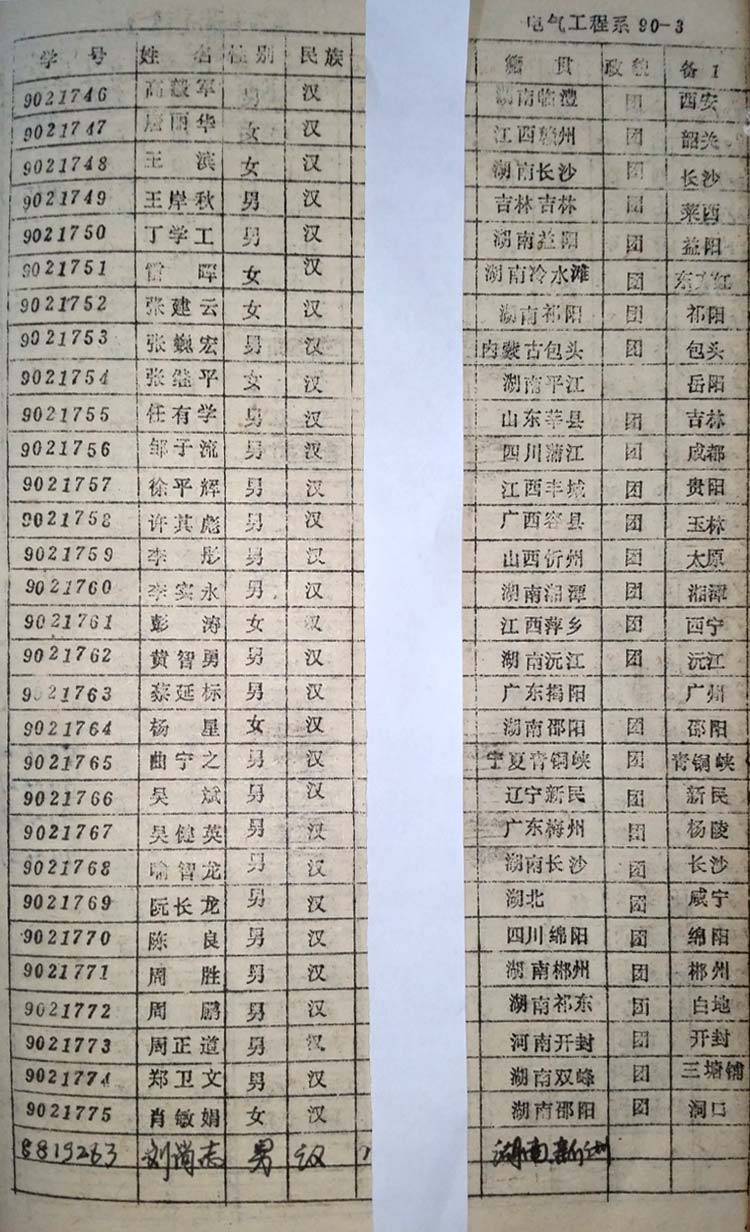 电气工程系 90-3
学号 姓名 性别 民族 籍贯 政貌 备1
9021746 高毅军 男 汉 湖南临澧 团 西安
9021747 唐丽华 女 汉 江西赣州 团 韶关
9021748 王滨 女 汉 湖南长沙 团 长沙
9021749 王岸秋 男 汉 吉林吉林 团 莱西
9021750 丁学工 男 汉 湖南益阳 团 益阳
9021751 雷晖 女 汉 湖南冷水滩 团 东方红
9021752 张建云 女 汉 湖南祁阳 团 祁阳
9021753 张巍宏 男 汉 内蒙古包头 团 包头
9021754 张继平 女 汉 湖南平江 岳阳
9021755 任有学 男 汉 山东莘县 团 吉林
9021756 邹子流 男 汉 四川蒲江 团 成都
9021757 徐平辉 男 汉 江西丰城 团 贵阳
9021758 许其彪 男 汉 广西容县 团 玉林
9021759 李彤 男 汉 山西忻州 团 太原
9021760 李实永 男 汉 湖南湘潭 团 湘潭
9021761 彭涛 女 汉 江西萍乡 团 西宁
9021762 黄智勇 男 汉 湖南沅江 团 沅江
9021763 蔡延标 男 汉 广东揭阳 广州
9021764 杨星 女 汉 湖南邵阳 团 邵阳
9021765 曲宁之 男 汉 宁夏青铜峡 团 青铜峡
9021766 吴斌 男 汉 辽宁新民 团 新民
9021767 吴健英 男 汉 广东梅州 团 杨陵
9021768 喻智龙 男 汉 湖南长沙 团 长沙
9021769 阮长龙 男 汉 湖北 团 咸宁
9021770 陈良 男 汉 四川绵阳 团 绵阳
9021771 周胜 男 汉 湖南郴州 团 郴州
9021772 周鹏 男 汉 湖南祁东 团 白地
9021773 周正道 男 汉 河南开封 团 开封
9021774 郑卫文 男 汉 湖南双峰 团 三塘铺
9021775 肖敏娟 女 汉 湖南邵阳 团 洞口
8819263 刘尚志 男 汉 湖南新